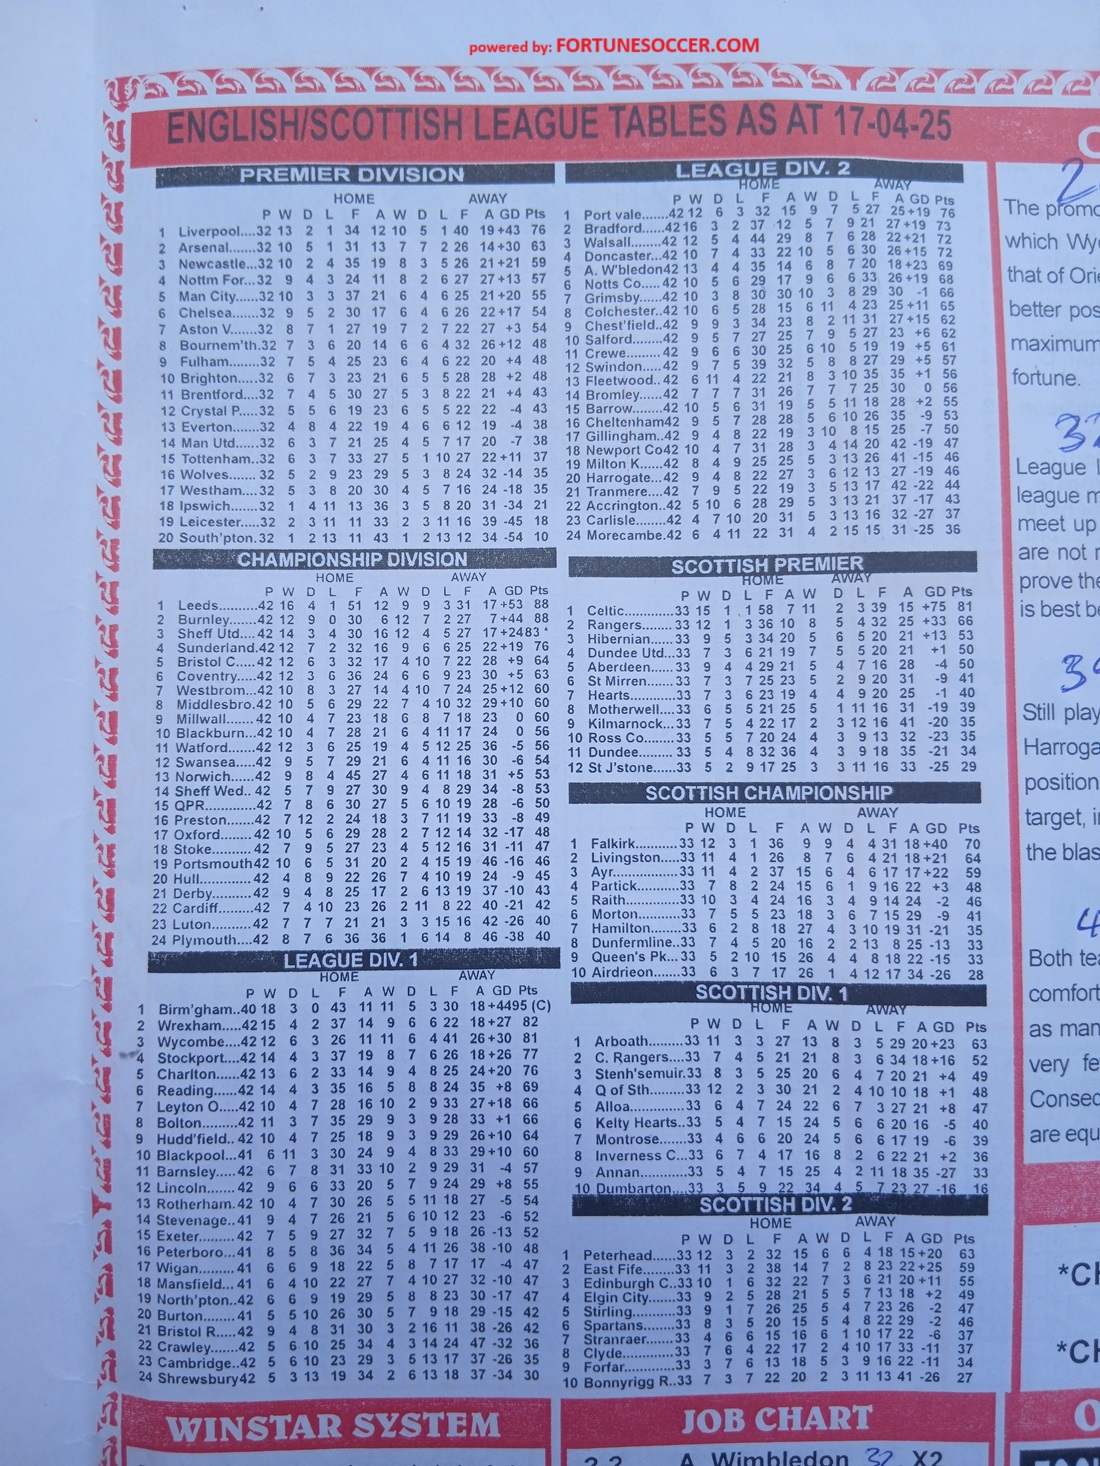 powered by: FORTUNESOCCER.COM
ENGLISH/SCOTTISH LEAGUE TABLES AS AT 17-04-25
PREMIER DIVISION
HOME AWAY
P W D L F A W D L F A GD Pts
1 Liverpool....32 13 2 1 34 12 10 5 1 40 19 +43 76
2 Arsenal.....32 10 5 1 31 13 7 7 2 26 14 +30 63
3 Newcastle...32 10 2 4 35 19 8 3 5 26 21 +21 59
4 Nottm For...32 9 4 3 24 11 8 2 6 27 27 +13 57
5 Man City.....32 10 3 3 37 21 6 4 6 25 21 +20 55
6 Chelsea.....32 9 5 2 30 17 6 4 6 26 22 +17 54
7 Aston V.....32 8 7 1 27 19 7 2 7 22 27 +3 54
8 Bournem'th.32 7 3 6 20 14 6 6 4 32 26 +12 48
9 Fulham.....32 7 5 4 25 23 6 4 6 22 20 +4 48
10 Brighton.....32 6 7 3 23 21 6 5 5 28 28 +2 48
11 Brentford...32 7 4 5 30 27 5 3 8 22 21 +4 43
12 Crystal P....32 5 5 6 19 23 6 5 5 22 22 -4 43
13 Everton.....32 4 8 4 22 19 4 6 6 12 19 -4 38
14 Man Utd....32 6 3 7 21 25 4 5 7 17 20 -7 38
15 Tottenham..32 6 3 7 33 27 5 1 10 27 22 +11 37
16 Wolves.....32 5 2 9 23 29 5 3 8 24 32 -14 35
17 Westham...32 5 3 8 20 30 4 5 7 16 24 -18 35
18 Ipswich.....32 1 4 11 13 36 3 5 8 20 31 -34 21
19 Leicester...32 2 3 11 11 33 2 3 11 16 39 -45 18
20 South'pton.32 1 2 13 11 43 1 2 13 12 34 -54 10
CHAMPIONSHIP DIVISION
HOME AWAY
P W D L F A W D L F A GD Pts
1 Leeds.........42 16 4 1 51 12 9 9 3 31 17 +53 88
2 Burnley......42 12 9 0 30 6 12 7 2 27 7 +44 88
3 Sheff Utd...42 14 3 4 30 16 12 4 5 27 17 +24 83 *
4 Sunderland.42 12 7 2 32 16 9 6 6 25 22 +19 76
5 Bristol C.....42 12 6 3 32 17 4 10 7 22 28 +9 64
6 Coventry....42 12 3 6 36 24 6 6 9 23 30 +5 63
7 Westbrom...42 10 8 3 27 14 4 10 7 24 25 +12 60
8 Middlesbro.42 10 5 6 29 22 7 4 10 32 29 +10 60
9 Millwall......42 10 4 7 23 18 6 8 7 18 23 0 60
10 Blackburn..42 10 4 7 28 21 6 4 11 17 24 0 56
11 Watford.....42 12 3 6 25 19 4 5 12 25 36 -5 56
12 Swansea...42 9 5 7 29 21 6 4 11 16 30 -6 54
13 Norwich....42 9 8 4 45 27 4 6 11 18 31 +5 53
14 Sheff Wed..42 5 7 9 27 30 9 4 8 29 34 -8 53
15 QPR..........42 7 8 6 30 27 5 6 10 19 28 -6 50
16 Preston.....42 7 12 2 24 18 3 7 11 19 33 -8 49
17 Oxford......42 10 5 6 29 28 2 7 12 14 32 -17 48
18 Stoke........42 7 9 5 27 23 4 5 12 16 31 -11 47
19 Portsmouth42 10 6 5 31 20 2 4 15 19 46 -16 46
20 Hull...........42 4 8 9 22 26 7 4 10 19 24 -9 45
21 Derby........42 9 4 8 25 17 2 6 13 19 37 -10 43
22 Cardiff.......42 7 4 10 23 26 2 11 8 22 40 -21 42
23 Luton........42 7 7 7 21 21 3 3 15 16 42 -26 40
24 Plymouth...42 8 7 6 36 36 1 6 14 8 46 -38 40
LEAGUE DIV. 1
HOME AWAY
P W D L F A W D L F A GD Pts
1 Birm'gham..40 18 3 0 43 11 11 5 3 30 18 +44 95 (C)
2 Wrexham....42 15 4 2 37 14 9 6 6 22 18 +27 82
3 Wycombe...42 12 6 3 26 11 11 6 4 41 26 +30 81
4 Stockport...42 14 4 3 37 19 8 7 6 26 18 +26 77
5 Charlton.....42 13 6 2 33 14 9 4 8 25 24 +20 76
6 Reading.....42 14 4 3 35 16 5 8 8 24 35 +8 69
7 Leyton O....42 10 4 7 28 16 10 2 9 33 27 +18 66
8 Bolton.......42 11 3 7 35 29 9 3 9 28 33 +1 66
9 Hudd'field..42 10 4 7 25 18 9 3 9 29 26 +10 64
10 Blackpool...41 6 11 3 30 24 9 4 8 33 29 +10 60
11 Barnsley....42 6 7 8 31 33 10 2 9 29 31 -4 57
12 Lincoln......42 9 6 6 33 20 5 7 9 24 29 +8 55
13 Rotherham.42 10 4 7 30 26 5 5 11 18 27 -5 54
14 Stevenage..41 9 4 7 26 21 5 6 10 12 23 -6 52
15 Exeter.......42 7 5 9 27 32 7 5 9 18 26 -13 52
16 Peterboro...41 8 5 8 36 34 5 4 11 26 38 -10 48
17 Wigan........41 6 6 9 18 22 5 8 7 17 17 -4 47
18 Mansfield...41 6 4 10 22 27 7 4 10 27 32 -10 47
19 North'pton..42 6 6 9 19 29 5 8 8 23 30 -17 47
20 Burton.......41 5 5 10 26 30 5 7 9 18 29 -15 42
21 Bristol R....42 9 4 8 31 30 3 2 16 11 38 -26 42
22 Crawley.....42 5 6 10 25 34 4 3 14 24 47 -32 36
23 Cambridge..42 5 6 10 23 29 3 5 13 17 37 -26 35
24 Shrewsbury42 5 3 13 19 34 2 6 13 18 37 -34 30
LEAGUE DIV. 2
HOME AWAY
P W D L F A W D L F A GD Pts
1 Port vale.......42 12 6 3 32 15 9 7 5 27 25 +19 76
2 Bradford.......42 16 3 2 37 12 5 7 9 21 27 +19 73
3 Walsall........42 12 5 4 44 29 8 7 6 28 22 +21 72
4 Doncaster....42 10 7 4 33 22 10 5 6 30 26 +15 72
5 A. W'bledon42 13 4 4 35 14 6 8 7 20 18 +23 69
6 Notts Co.....42 10 5 6 29 17 9 6 6 33 26 +19 68
7 Grimsby......42 10 3 8 30 30 10 3 8 29 30 -1 66
8 Colchester..42 10 6 5 28 15 6 11 4 23 25 +11 65
9 Chest'field..42 9 9 3 34 23 8 2 11 31 27 +15 62
10 Salford.......42 9 5 7 27 25 7 9 5 27 23 +6 62
11 Crewe........42 9 6 6 30 25 6 10 5 19 19 +5 61
12 Swindon....42 9 7 5 39 32 5 8 8 27 29 +5 57
13 Fleetwood..42 6 11 4 22 21 8 3 10 35 35 +1 56
14 Bromley....42 7 7 7 31 26 7 7 7 25 30 0 56
15 Barrow......42 10 5 6 31 19 5 5 11 18 28 +2 55
16 Cheltenham42 9 5 7 28 28 5 6 10 26 35 -9 53
17 Gillingham..42 9 4 8 22 19 3 10 8 15 25 -7 50
18 Newport Co42 10 4 7 31 28 3 4 14 20 42 -19 47
19 Milton K.....42 8 4 9 25 25 5 3 13 26 41 -15 46
20 Harrogate...42 9 4 8 22 27 3 6 12 13 27 -19 46
21 Tranmere....42 7 9 5 22 19 3 5 13 17 42 -22 44
22 Accrington..42 5 10 6 28 29 5 3 13 21 37 -17 43
23 Carlisle......42 4 7 10 20 31 5 3 13 16 32 -27 37
24 Morecambe.42 6 4 11 22 31 4 2 15 15 31 -25 36
SCOTTISH PREMIER
HOME AWAY
P W D L F A W D L F A GD Pts
1 Celtic............33 15 1 1 58 7 11 2 3 39 15 +75 81
2 Rangers.......33 12 1 3 36 10 8 5 4 32 25 +33 66
3 Hibernian.....33 9 5 3 34 20 5 6 5 20 21 +13 53
4 Dundee Utd...33 7 3 6 21 19 7 5 5 20 21 +1 50
5 Aberdeen......33 9 4 4 29 21 5 4 7 16 28 -4 50
6 St Mirren.....33 7 3 7 25 23 5 2 9 20 31 -9 41
7 Hearts..........33 7 3 6 23 19 4 4 9 20 25 -1 40
8 Motherwell....33 6 5 5 21 25 5 1 11 16 31 -19 39
9 Kilmarnock...33 7 5 4 22 17 2 3 12 16 41 -20 35
10 Ross Co......33 5 5 7 20 24 4 3 9 13 32 -23 35
11 Dundee.......33 5 4 8 32 36 4 3 9 18 35 -21 34
12 St J'stone.....33 5 2 9 17 25 3 3 11 16 33 -25 29
SCOTTISH CHAMPIONSHIP
HOME AWAY
P W D L F A W D L F A GD Pts
1 Falkirk........33 12 3 1 36 9 9 4 4 31 18 +40 70
2 Livingston...33 11 4 1 26 8 7 6 4 21 18 +21 64
3 Ayr.............33 11 4 2 37 15 6 4 6 17 17 +22 59
4 Partick.......33 7 8 2 24 15 6 1 9 16 22 +3 48
5 Raith..........33 10 3 4 24 16 3 4 9 14 24 -2 46
6 Morton.......33 7 5 5 23 18 3 6 7 15 29 -9 41
7 Hamilton....33 6 2 8 18 27 4 3 10 19 31 -21 35
8 Dunfermline..33 7 4 5 20 16 2 2 13 8 25 -13 33
9 Queen's Pk...33 5 2 10 15 26 4 4 8 18 22 -15 33
10 Airdrieon....33 6 3 7 17 26 1 4 12 17 34 -26 28
SCOTTISH DIV. 1
HOME AWAY
P W D L F A W D L F A GD Pts
1 Arboath........33 11 3 3 27 13 8 3 5 29 20 +23 63
2 C. Rangers...33 7 4 5 21 21 8 3 6 34 18 +16 52
3 Stenh'semuir.33 8 3 5 25 20 6 4 7 20 21 +4 49
4 Q of Sth.......33 12 2 3 30 21 2 4 10 10 18 +1 48
5 Alloa............33 6 4 7 24 22 6 7 3 27 21 +8 47
6 Kelty Hearts..33 5 4 7 15 24 5 6 6 20 16 -5 40
7 Montrose.....33 4 6 6 20 24 5 6 6 17 19 -6 39
8 Inverness C...33 6 7 4 17 16 8 2 6 22 21 +2 36
9 Annan..........33 5 4 7 15 25 4 2 11 18 35 -27 33
10 Dumbarton...33 3 5 9 22 34 4 5 7 23 27 -16 16
SCOTTISH DIV. 2
HOME AWAY
P W D L F A W D L F A GD Pts
1 Peterhead.....33 12 3 2 32 15 6 6 4 18 15 +20 63
2 East Fife.......33 11 3 2 38 14 7 2 8 23 22 +25 59
3 Edinburgh C..33 10 1 6 32 22 7 3 6 21 20 +11 55
4 Elgin City.....33 9 2 5 28 21 5 5 7 13 18 +2 49
5 Stirling.........33 9 1 7 26 25 5 4 7 23 26 -2 47
6 Spartans......33 8 3 5 20 15 5 4 8 22 29 -2 46
7 Stranraer......33 4 6 6 15 16 6 1 10 17 22 -6 37
8 Clyde...........33 7 6 4 22 17 2 4 10 17 33 -11 37
9 Forfar..........33 3 7 6 13 18 5 3 9 16 22 -11 34
10 Bonnyrigg R..33 7 3 7 22 20 2 3 11 13 41 -26 27
The promo
which Wyc
that of Orie
better pos
maximum
fortune.
League l
league m
meet up
are not r
prove the
is best be
Still play
Harroga
position
target, i
the blas
Both tea
comfort
as man
very fe
Consec
are equ
*CH
*CH
WINSTAR SYSTEM
JOB CHART
A. Wimbledon 32 X2